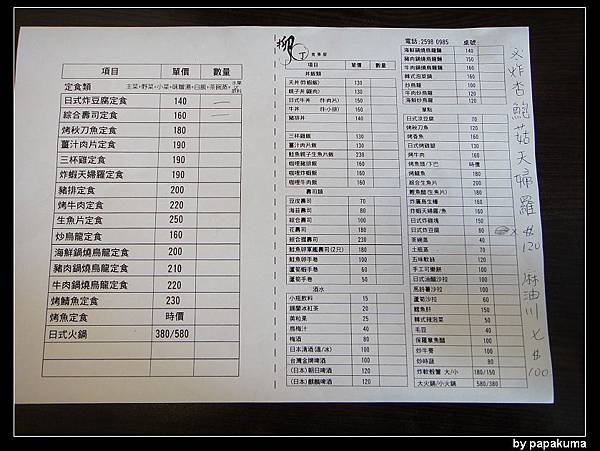 項目 單價 數量
定食類 主菜+野菜+小菜+味噌湯+白飯+茶碗蒸+
日式炸豆腐定食 140
綜合壽司定食 160
烤秋刀魚定食 180
薑汁肉片定食 190
三杯雞定食 190
炸蝦天婦羅定食 190
豬排定食 200
烤牛肉定食 220
生魚片定食 250
炒烏龍定食 160
海鮮鍋燒烏龍定食 200
豬肉鍋燒烏龍定食 210
牛肉鍋燒烏龍定食 220
烤鯖魚定食 230
烤魚定食 時價
日式火鍋 380/580
項目 單價 數量
丼飯類
天丼(炸蝦飯) 130
親子丼(雞肉) 130
日式牛丼 (牛肉片) 150
牛丼 (牛小排) 160
豬排丼 140
三杯雞飯 130
薑汁肉片飯 130
鮭魚親子生魚片飯 360
咖哩豬排飯 150
咖哩炸蝦飯 150
咖哩牛肉飯 150
壽司類
豆皮壽司 70
海苔壽司 80
綜合壽司 100
花壽司 180
綜合握壽司 230
鮭魚卵軍艦壽司(2只) 180
鮭魚卵手卷 100
蘆筍蝦手卷 60
蘆筍手卷 50
酒水
小瓶飲料 15
錫蘭冰紅茶 20
黃粒果 25
烏梅汁 40
梅酒 80
日本清酒(溫/冰) 100
台灣金牌啤酒 100
(日本)朝日啤酒 120
(日本)麒麟啤酒 120
電話:2598 0985 桌號
海鮮鍋燒烏龍麵 140
豬肉鍋燒烏龍麵 150
牛肉鍋燒烏龍麵 160
韓式泡菜鍋 150
炒烏龍 100
牛肉炒烏龍 120
海鮮炒烏龍 120
單點
日式涼豆腐 70
烤秋刀魚 120
烤香魚 160
日式烤雞腿 130
烤牛肉 160
烤魚頭/下巴 時價
烤鯖魚 180
綜合生魚片 220
炸廣島生蠔 160
炸蝦天婦羅/魚 160
日式炸雞塊 150
日式炸豆腐 80
茶碗蒸 40
土瓶蒸 70
五味軟絲 120
手工可樂餅 100
日式油醋沙拉 100
馬鈴薯沙拉 100
蘆筍沙拉 60
鱈魚肝 150
韓式辣泡菜 50
毛豆 40
保羅章魚腳 100
炒牛蒡 100
炒時蔬 80
炸軟殼蟹 大/小 180/150
大火鍋/小火鍋 580/380
炸杏鮑菇天婦羅 $120
麻油川七 $100
by papakuma